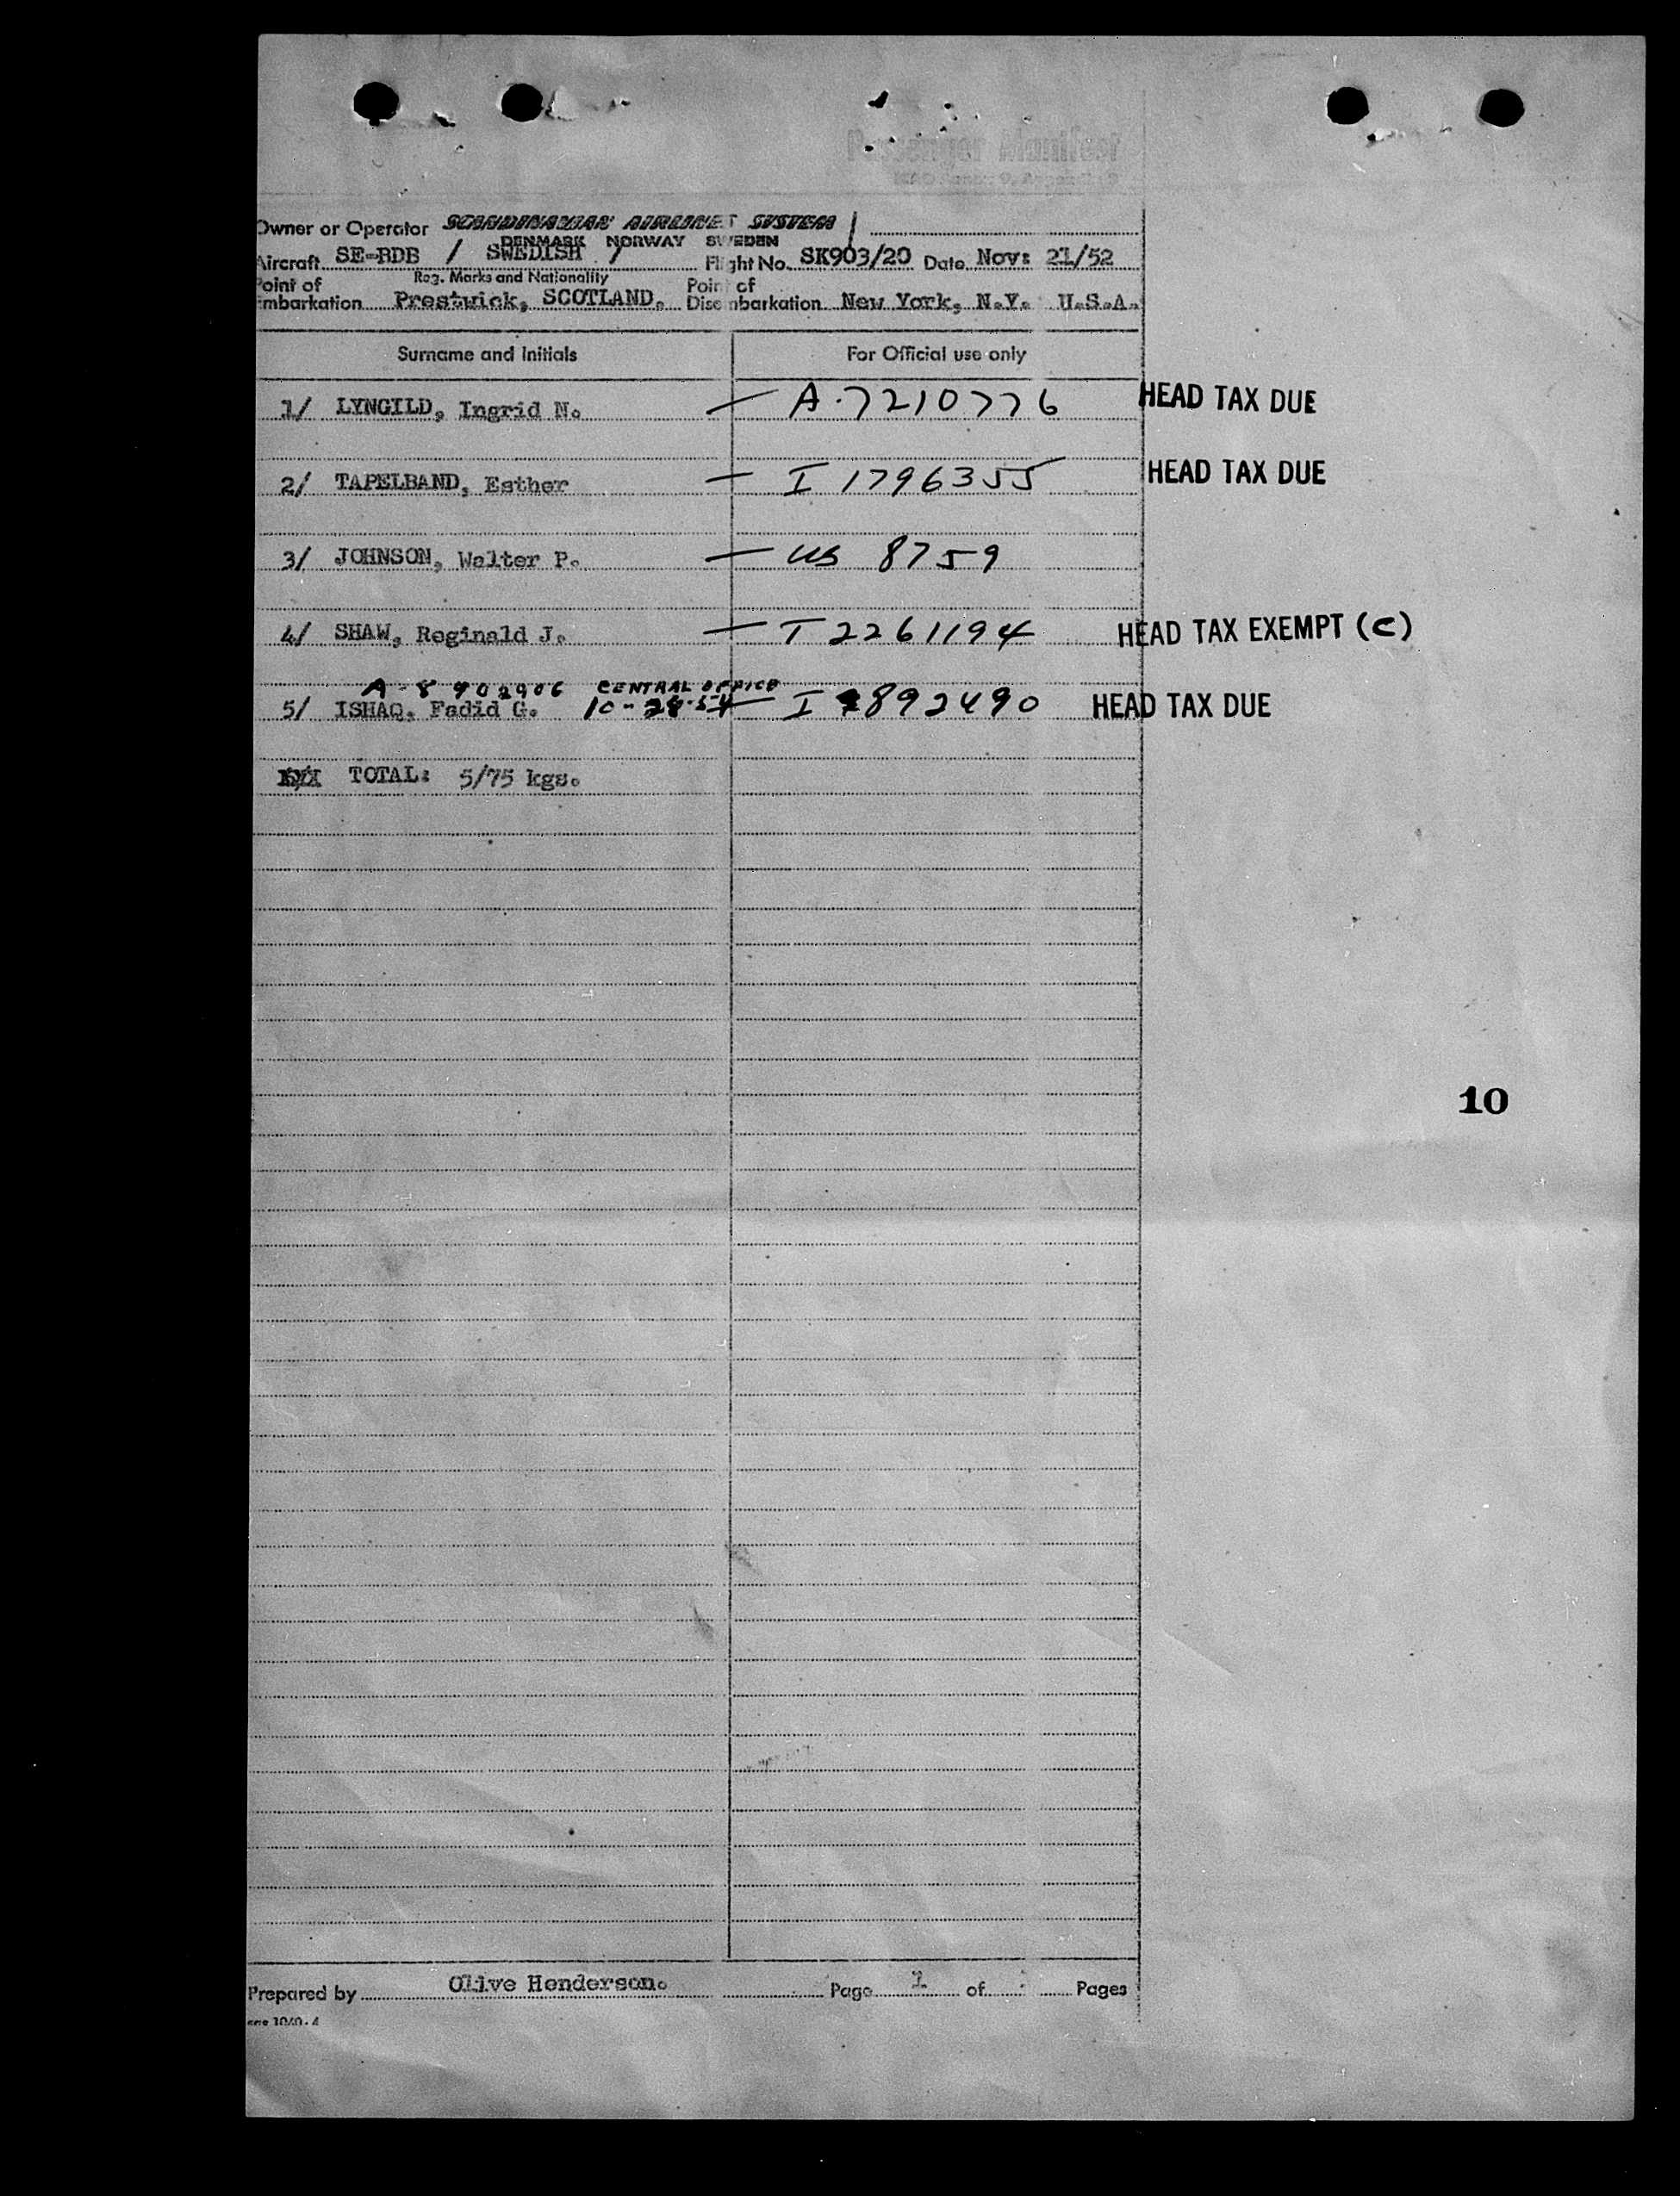 Passenger Manifest
Owner or Operator SCANDINAVIAN AIRLINES SYSTEM /
DENMARK NORWAY SWEDEN
Aircraft SE-BDB / SWEDISH / Flight No. SK903/20 Date Nov: 21/52
Reg. Marks and Nationality
Point of Embarkation Prestwick, SCOTLAND. Point of Disembarkation New York, N.Y. U.S.A.
Surname and Initials For Official use only
1/ LYNGILD, Ingrid N. — A-7210776 HEAD TAX DUE
2/ TAPELBAND, Esther — I 1796355 HEAD TAX DUE
3/ JOHNSON, Walter P. — US 8759
4/ SHAW, Reginald J. — T 2261194 HEAD TAX EXEMPT (C)
A-8 902906 CENTRAL OFFICE
5/ ISHAQ, Fadid G. 10-28-54 — I 892490 HEAD TAX DUE
TOTAL: 5/75 kgs.
10
Prepared by Olive Henderson. Page 1 of Pages